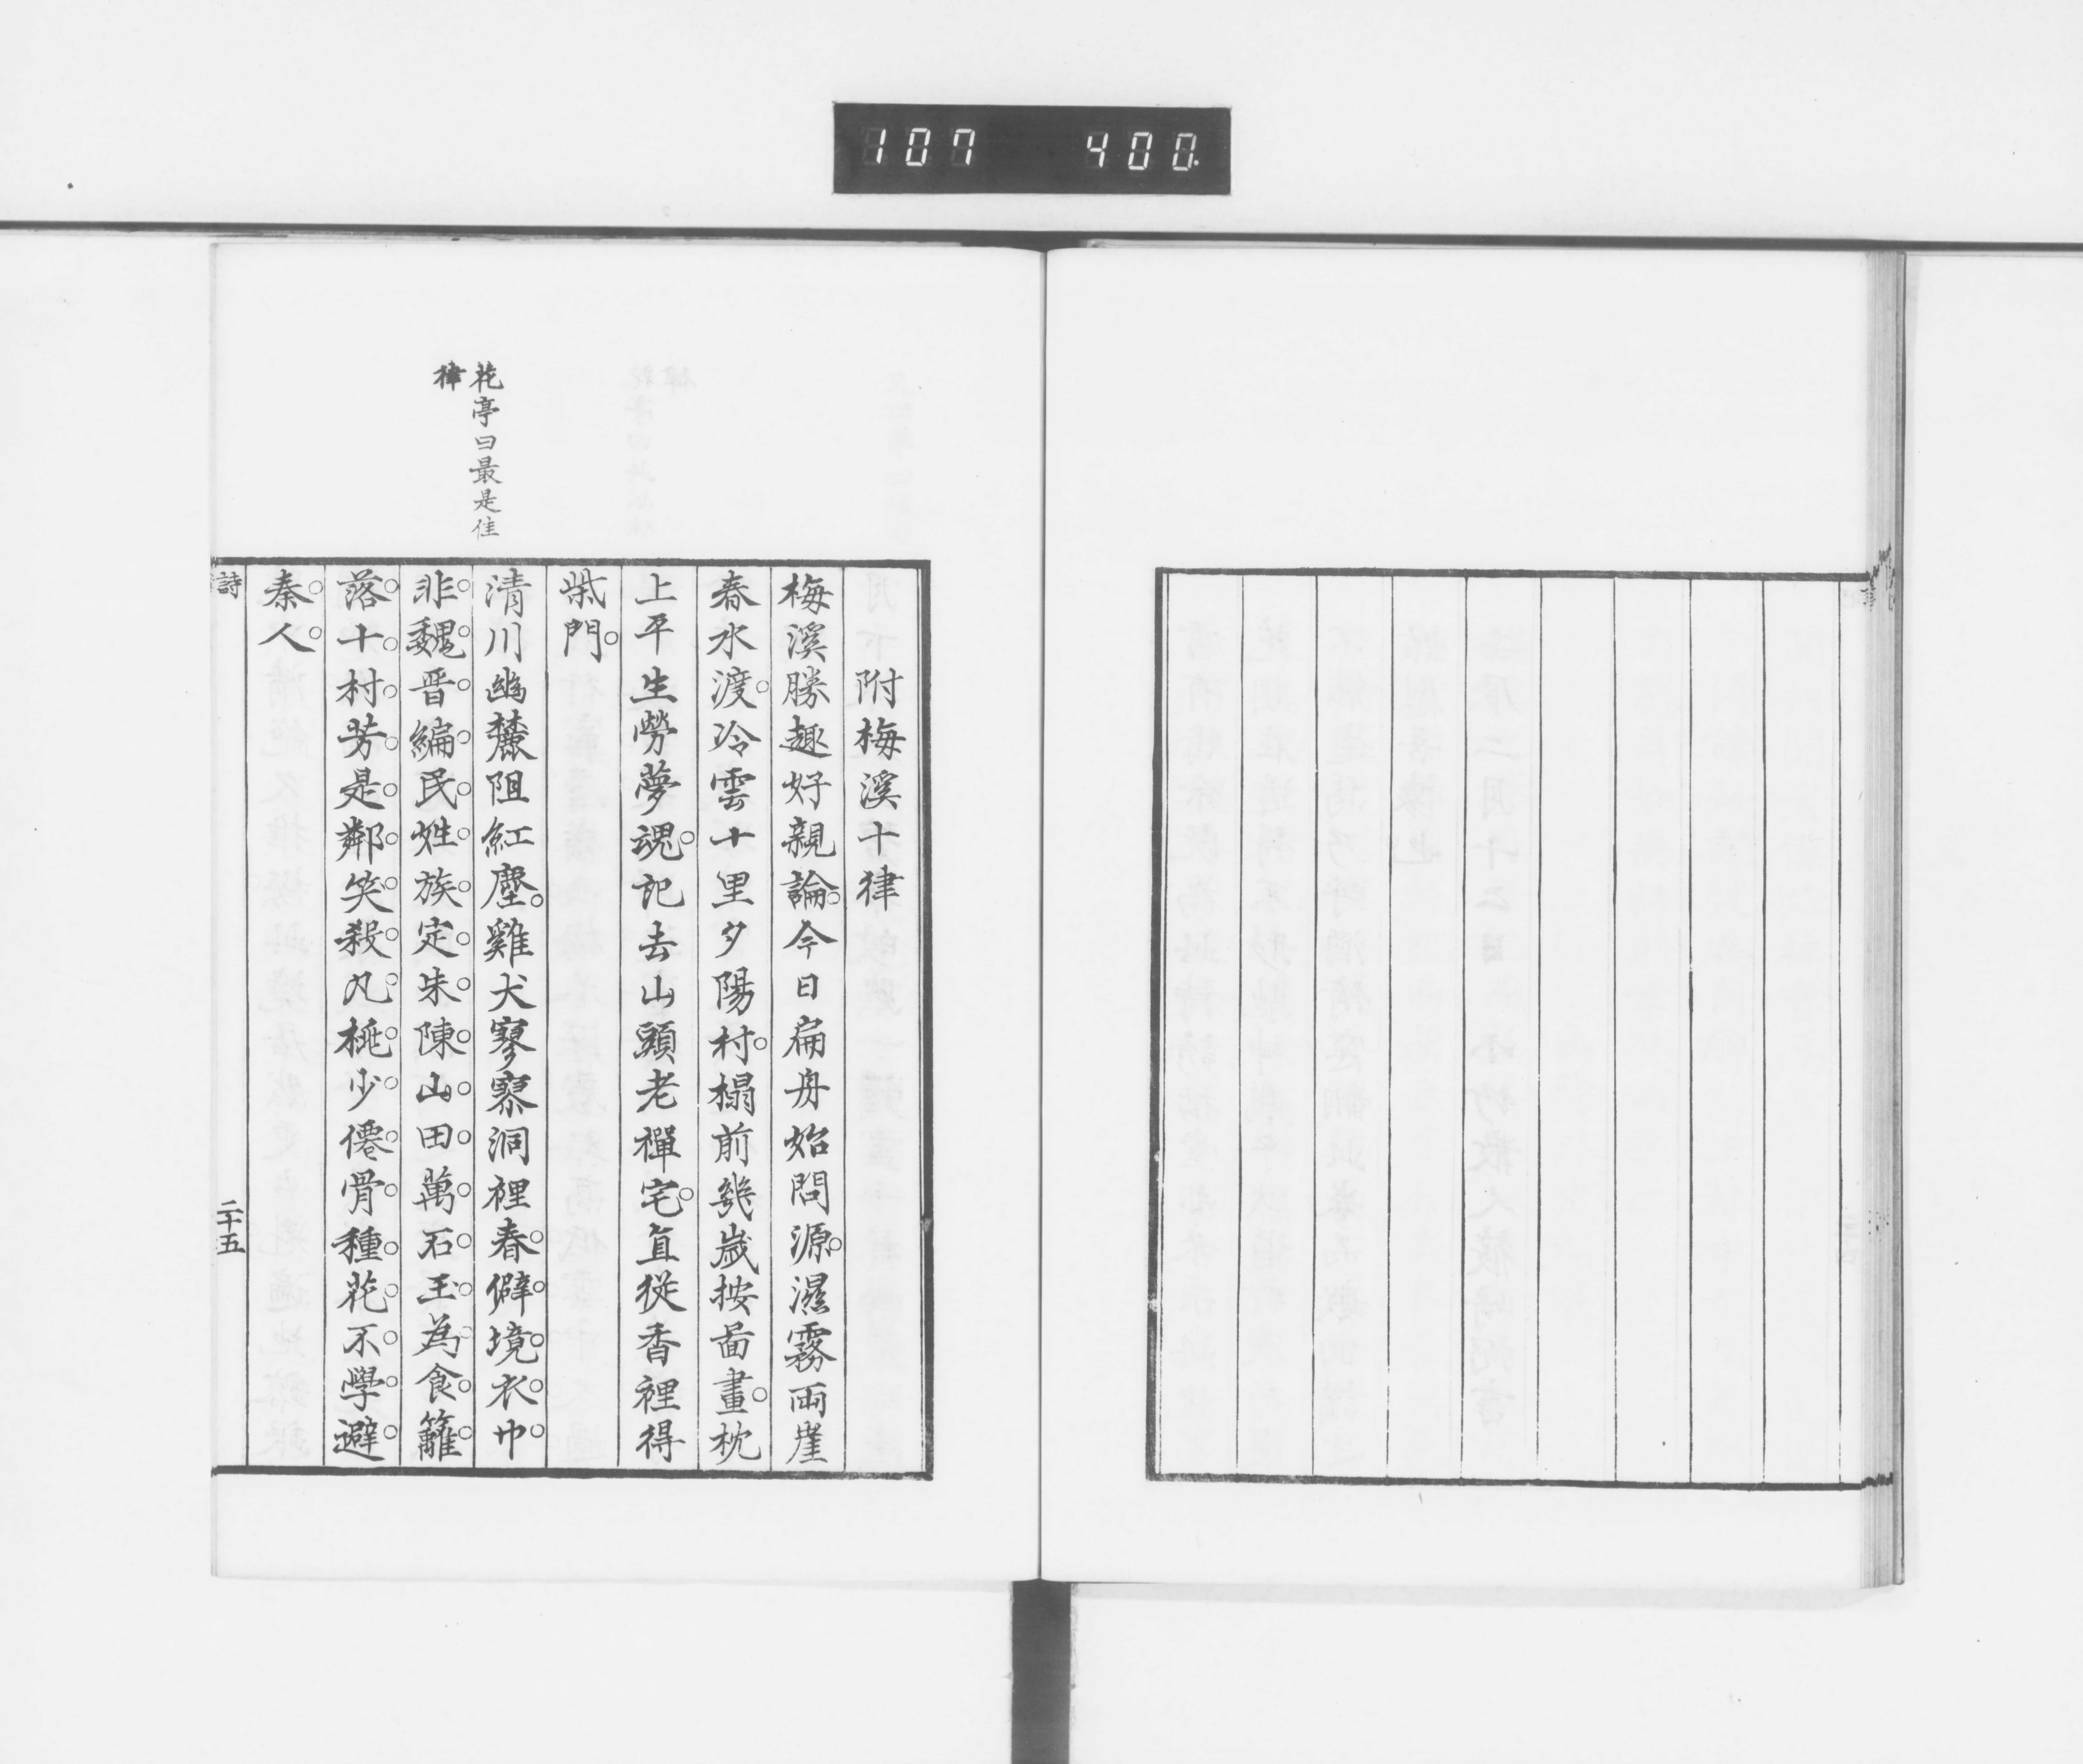 107 400
附梅溪十律
梅溪勝趣好親論今日扁舟始問源濕霧兩崖
春水渡冷雲十里夕陽村榻前幾歲按啚畫枕
上平生勞夢魂記去山頭老禪宅直從香裡得
柴門
清川幽麓阻紅塵雞犬寥寥洞裡春僻境衣巾
非魏晋編民姓族定朱陳山田萬石玉為食籬
落十村芳是鄰笑殺凡桃少僊骨種花不學避
秦人
花亭曰最是佳
律
詩
二十五